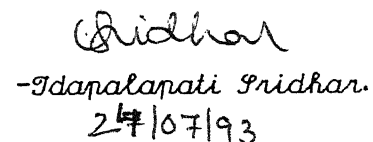 Sridhar
-Idapalapati Sridhar.
/07/93